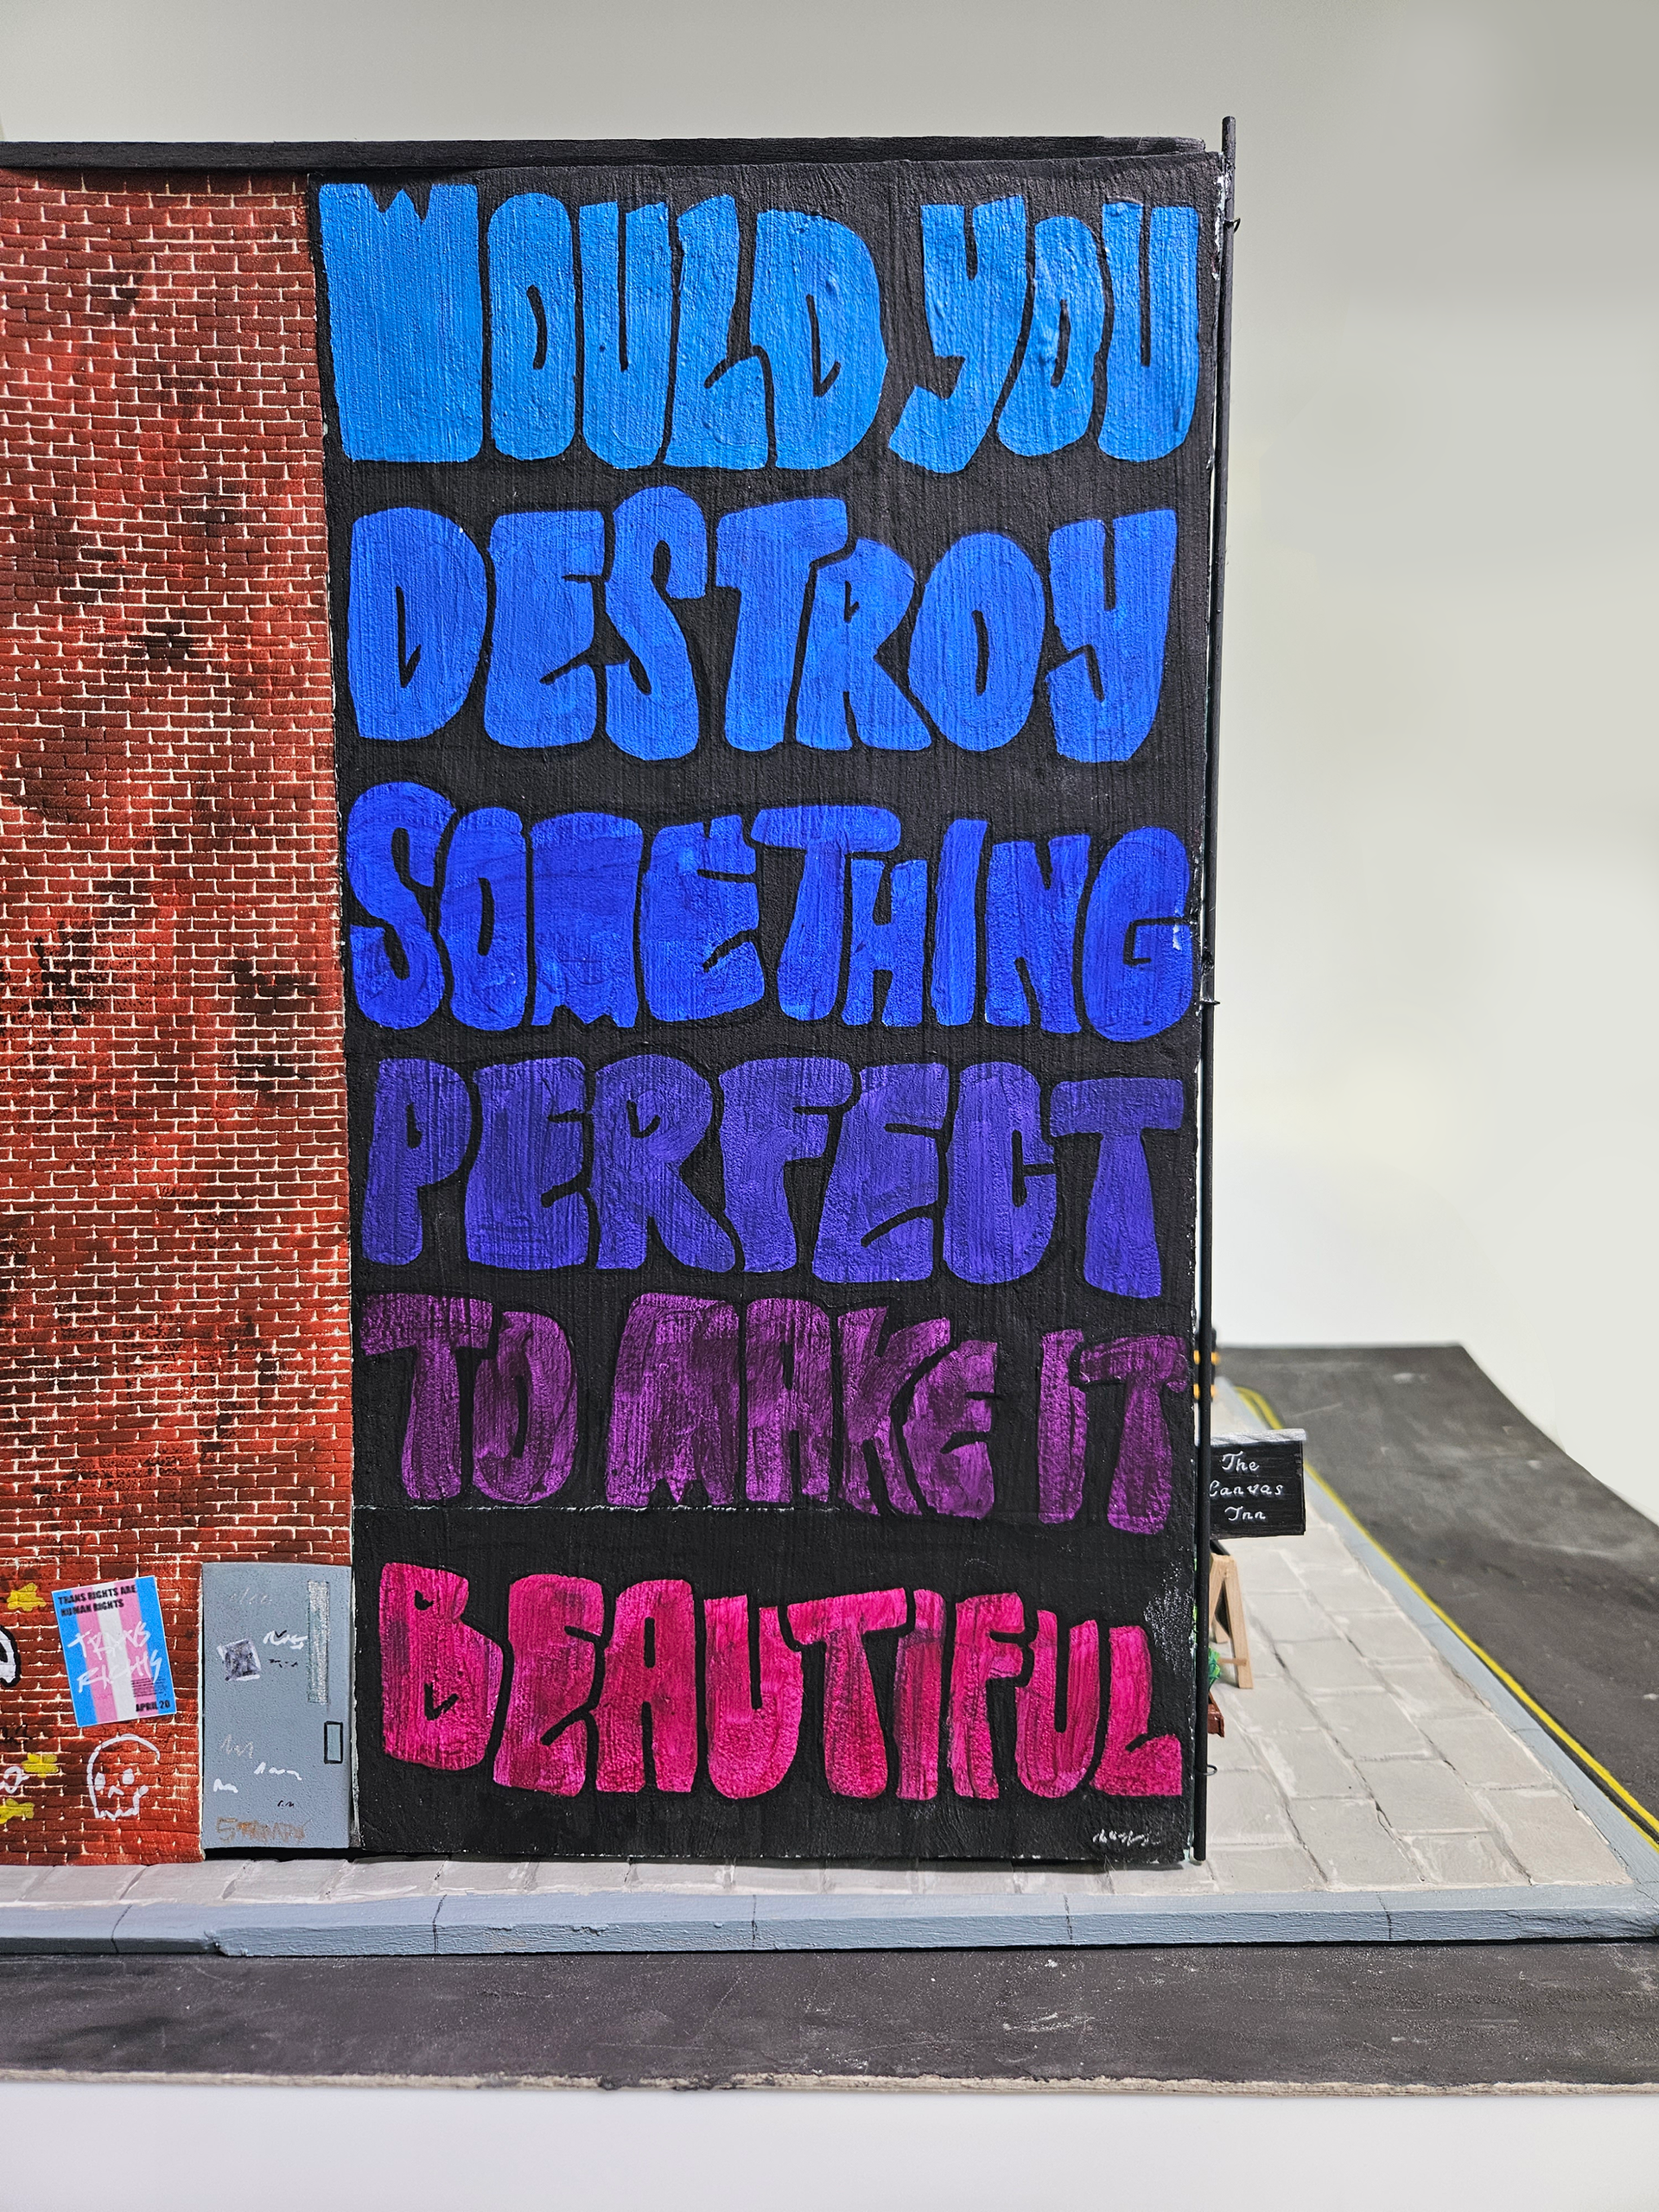 WOULD YOU
DESTROY
SOMETHING
PERFECT
TO MAKE IT
BEAUTIFUL
The
Canvas
Inn
TRANS RIGHTS ARE
HUMAN RIGHTS
TRANS
RIGHTS
APRIL 20